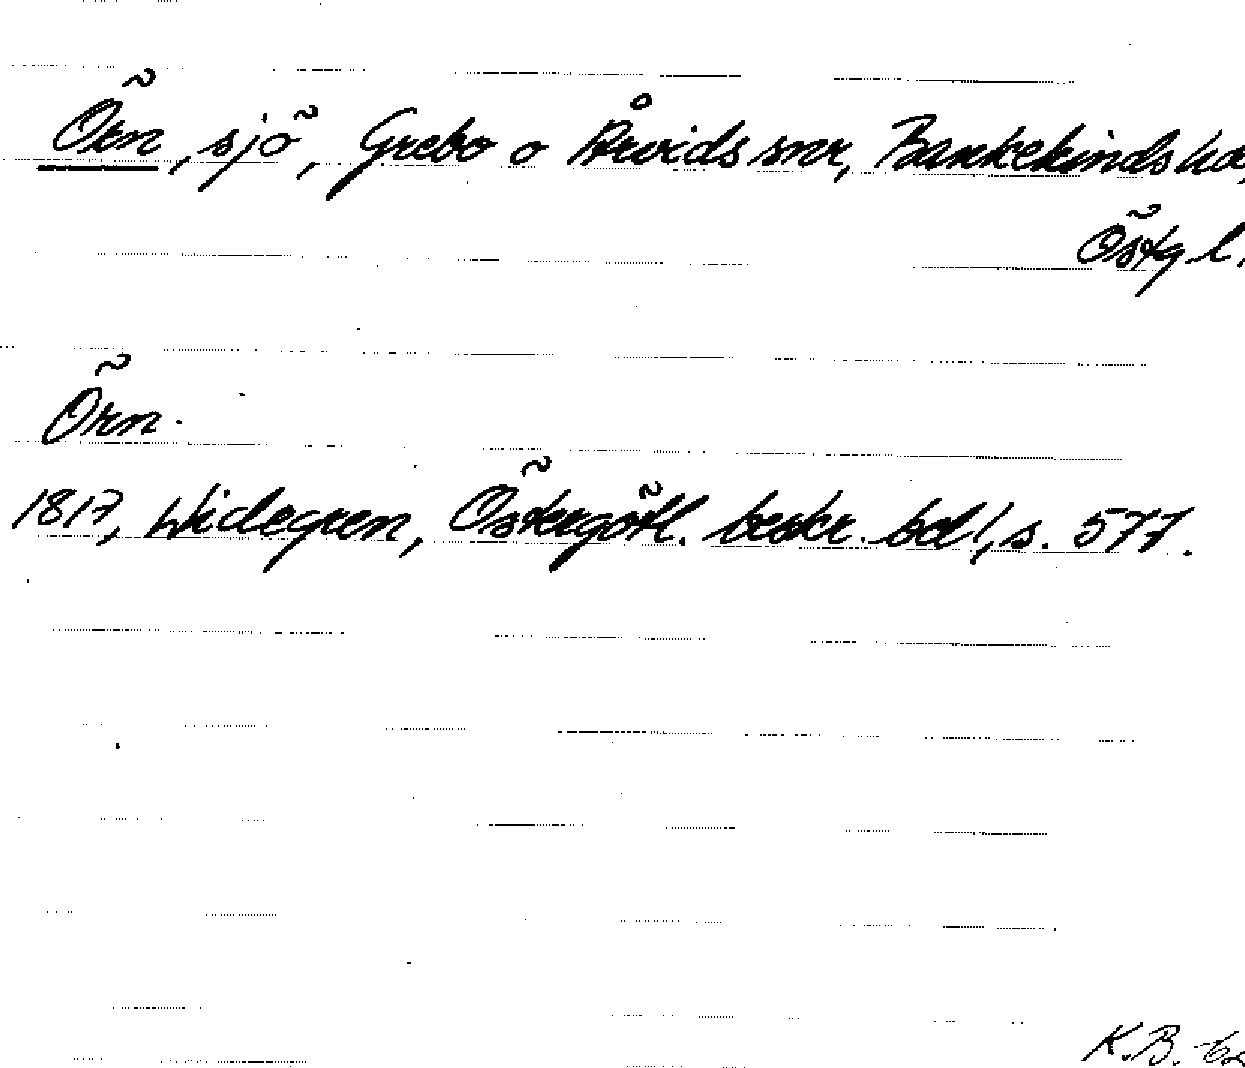 Örn, sjö, Grebo o Årvids snr, Bankekinds hd,
Östg l.
Örn.
1817, Widegren, Östergötl. beskr. bd 1, s. 577.
K.B.